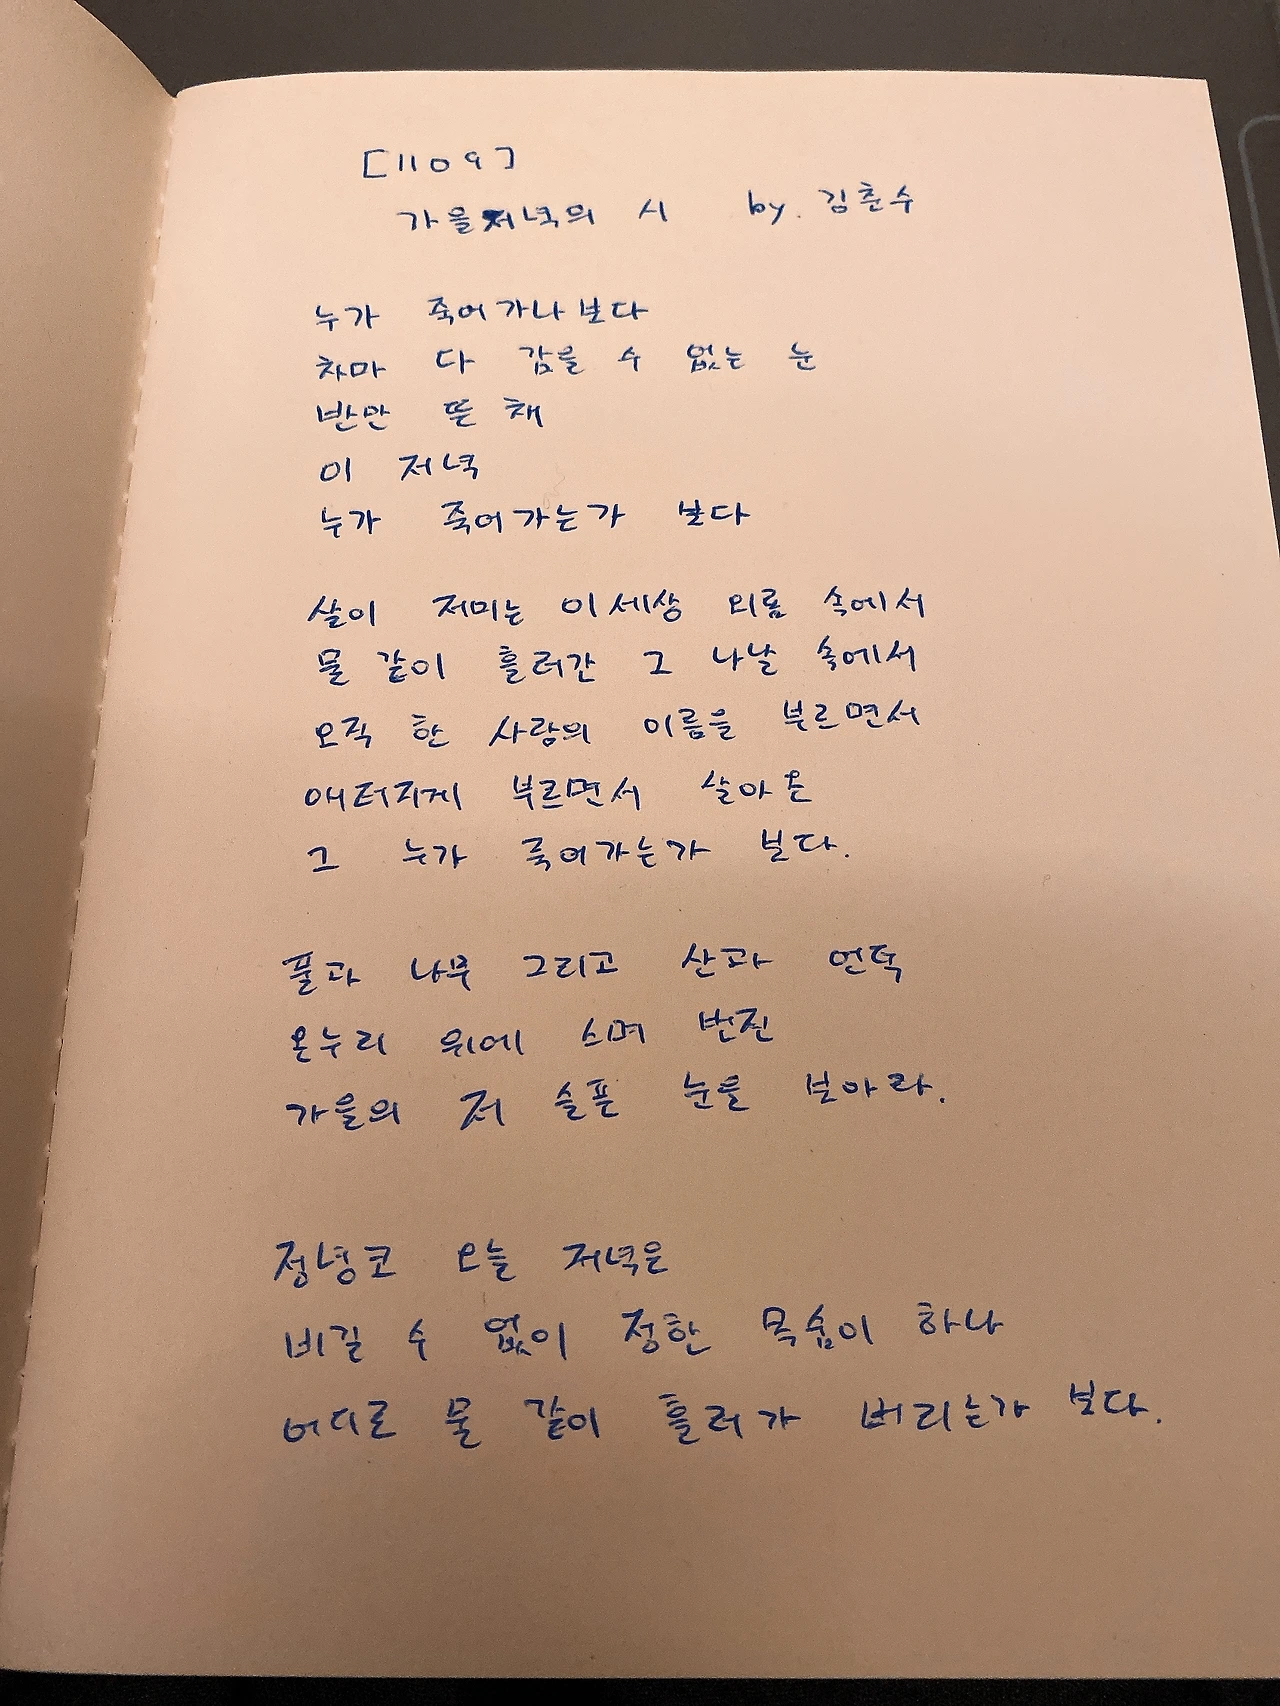 [1109]
가을저녁의 시 by. 김춘수
누가 죽어가나보다
차마 다 감을 수 없는 눈
반만 뜬 채
이 저녁
누가 죽어가는가 보다
살이 저미는 이세상 외롬 속에서
물 같이 흘러간 그 나날 속에서
오직 한 사람의 이름을 부르면서
애터지게 부르면서 살아온
그 누가 죽어가는가 보다.
풀과 나무 그리고 산과 언덕
온누리 위에 스며 번진
가을의 저 슬픈 눈을 보아라.
정녕코 오늘 저녁은
비길 수 없이 정한 목숨이 하나
어디로 물 같이 흘러가 버리는가 보다.